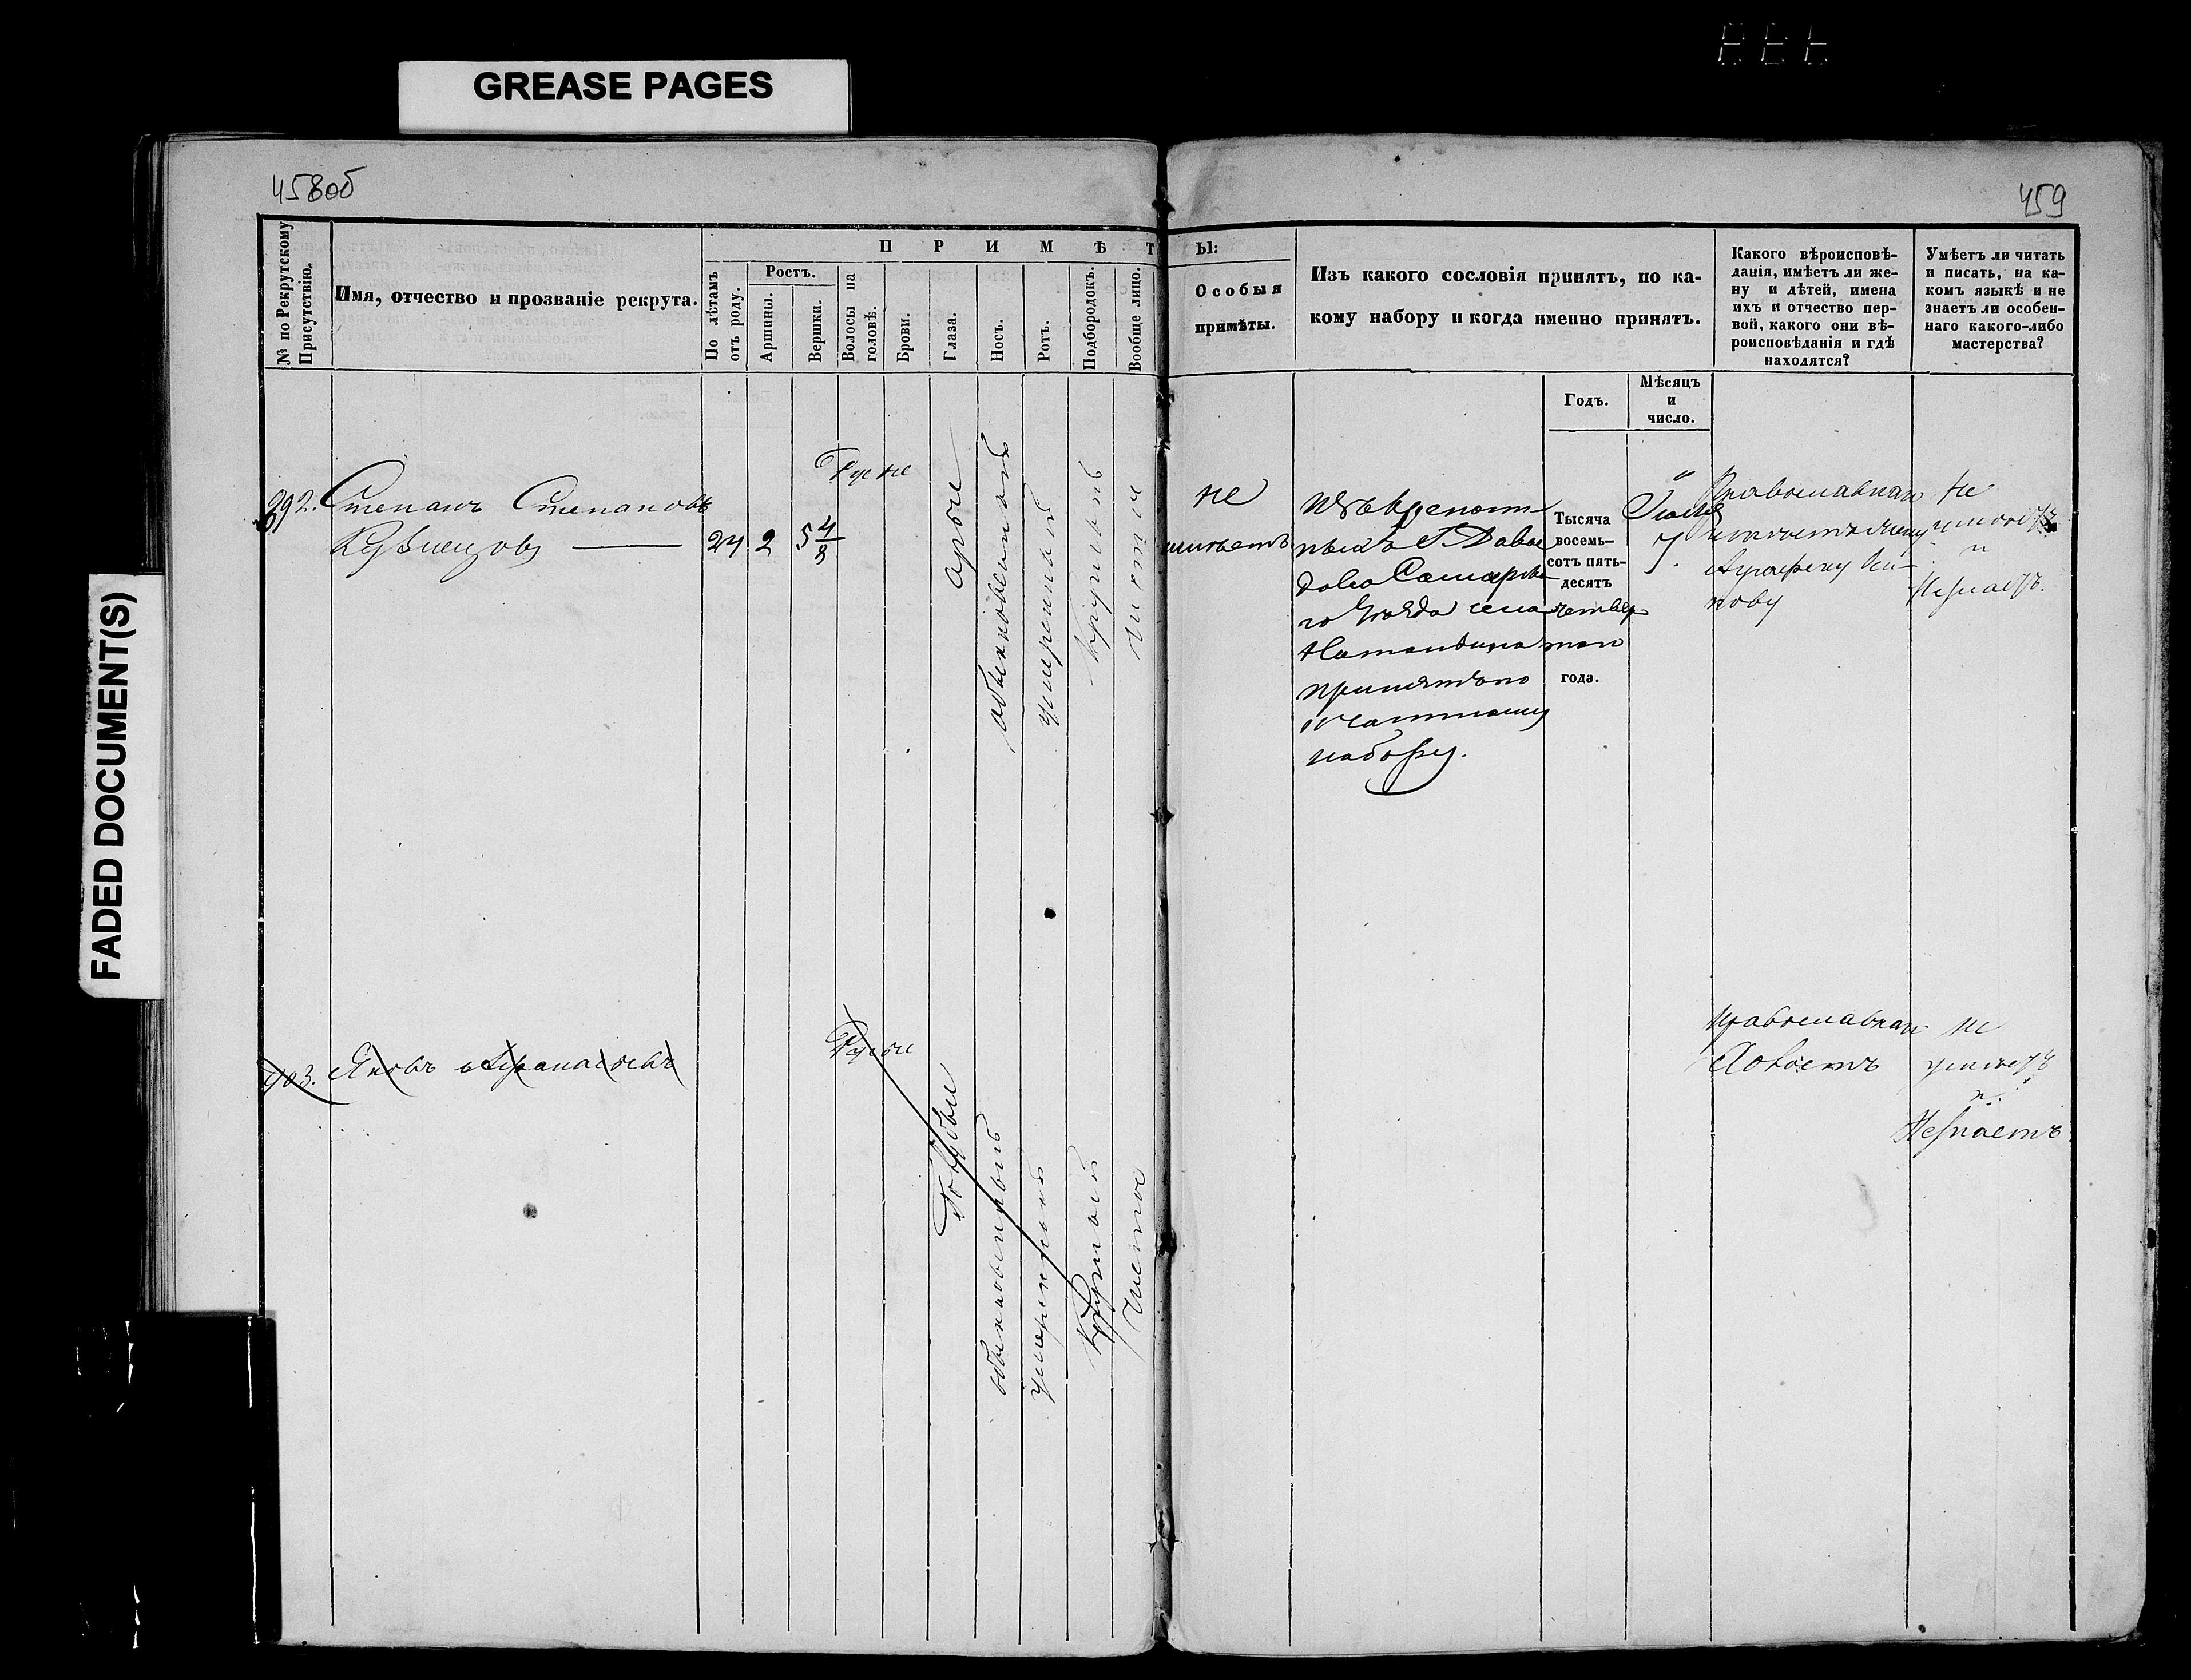 GREASE PAGES
FADED DOCUMENT(S)
458об
459
№ по Рекрутскому Присутствію.
Имя, отчество и прозваніе рекрута.
П Р И М Ѣ Т Ы:
По лѣтамъ отъ роду.
Ростъ.
Аршины.
Вершки.
Волосы на головѣ.
Брови.
Глаза.
Носъ.
Ротъ.
Подбородокъ.
Вообще лицо.
Особыя
примѣты.
Изъ какого сословія принятъ, по ка-
кому набору и когда именно принятъ.
Годъ.
Мѣсяцъ
и
число.
Какого вѣроисповѣ-
данія, имѣетъ ли же-
ну и дѣтей, имена
ихъ и отчество пер-
вой, какого они вѣ-
роисповѣданія и гдѣ
находятся?
Умѣетъ ли читать
и писать, на ка-
комъ языкѣ и не
знаетъ ли особен-
наго какого-либо
мастерства?
992. Степанъ Степановъ
Кузнецовъ
24 2 5 4/8
Русые
карые
обыкновенный
умеренный
круглый
чистое
не
имѣетъ
Изъ крепост
ныхъ Г. Давы
дова Самарска
го Уѣзда села
принятъ по
набору.
Тысяча
восемь-
сотъ пять-
десятъ
четвер
таго
года.
Іюля
7.
Православнаго
имѣетъ жену
Аграфену
Не
умѣетъ
и
Незнаетъ.
993. Яковъ Афанасьевъ
Русые
Голубые
обыкновенный
умеренный
круглый
чистое
Православнаго
Холостъ
не
умѣетъ
и
Незнаетъ